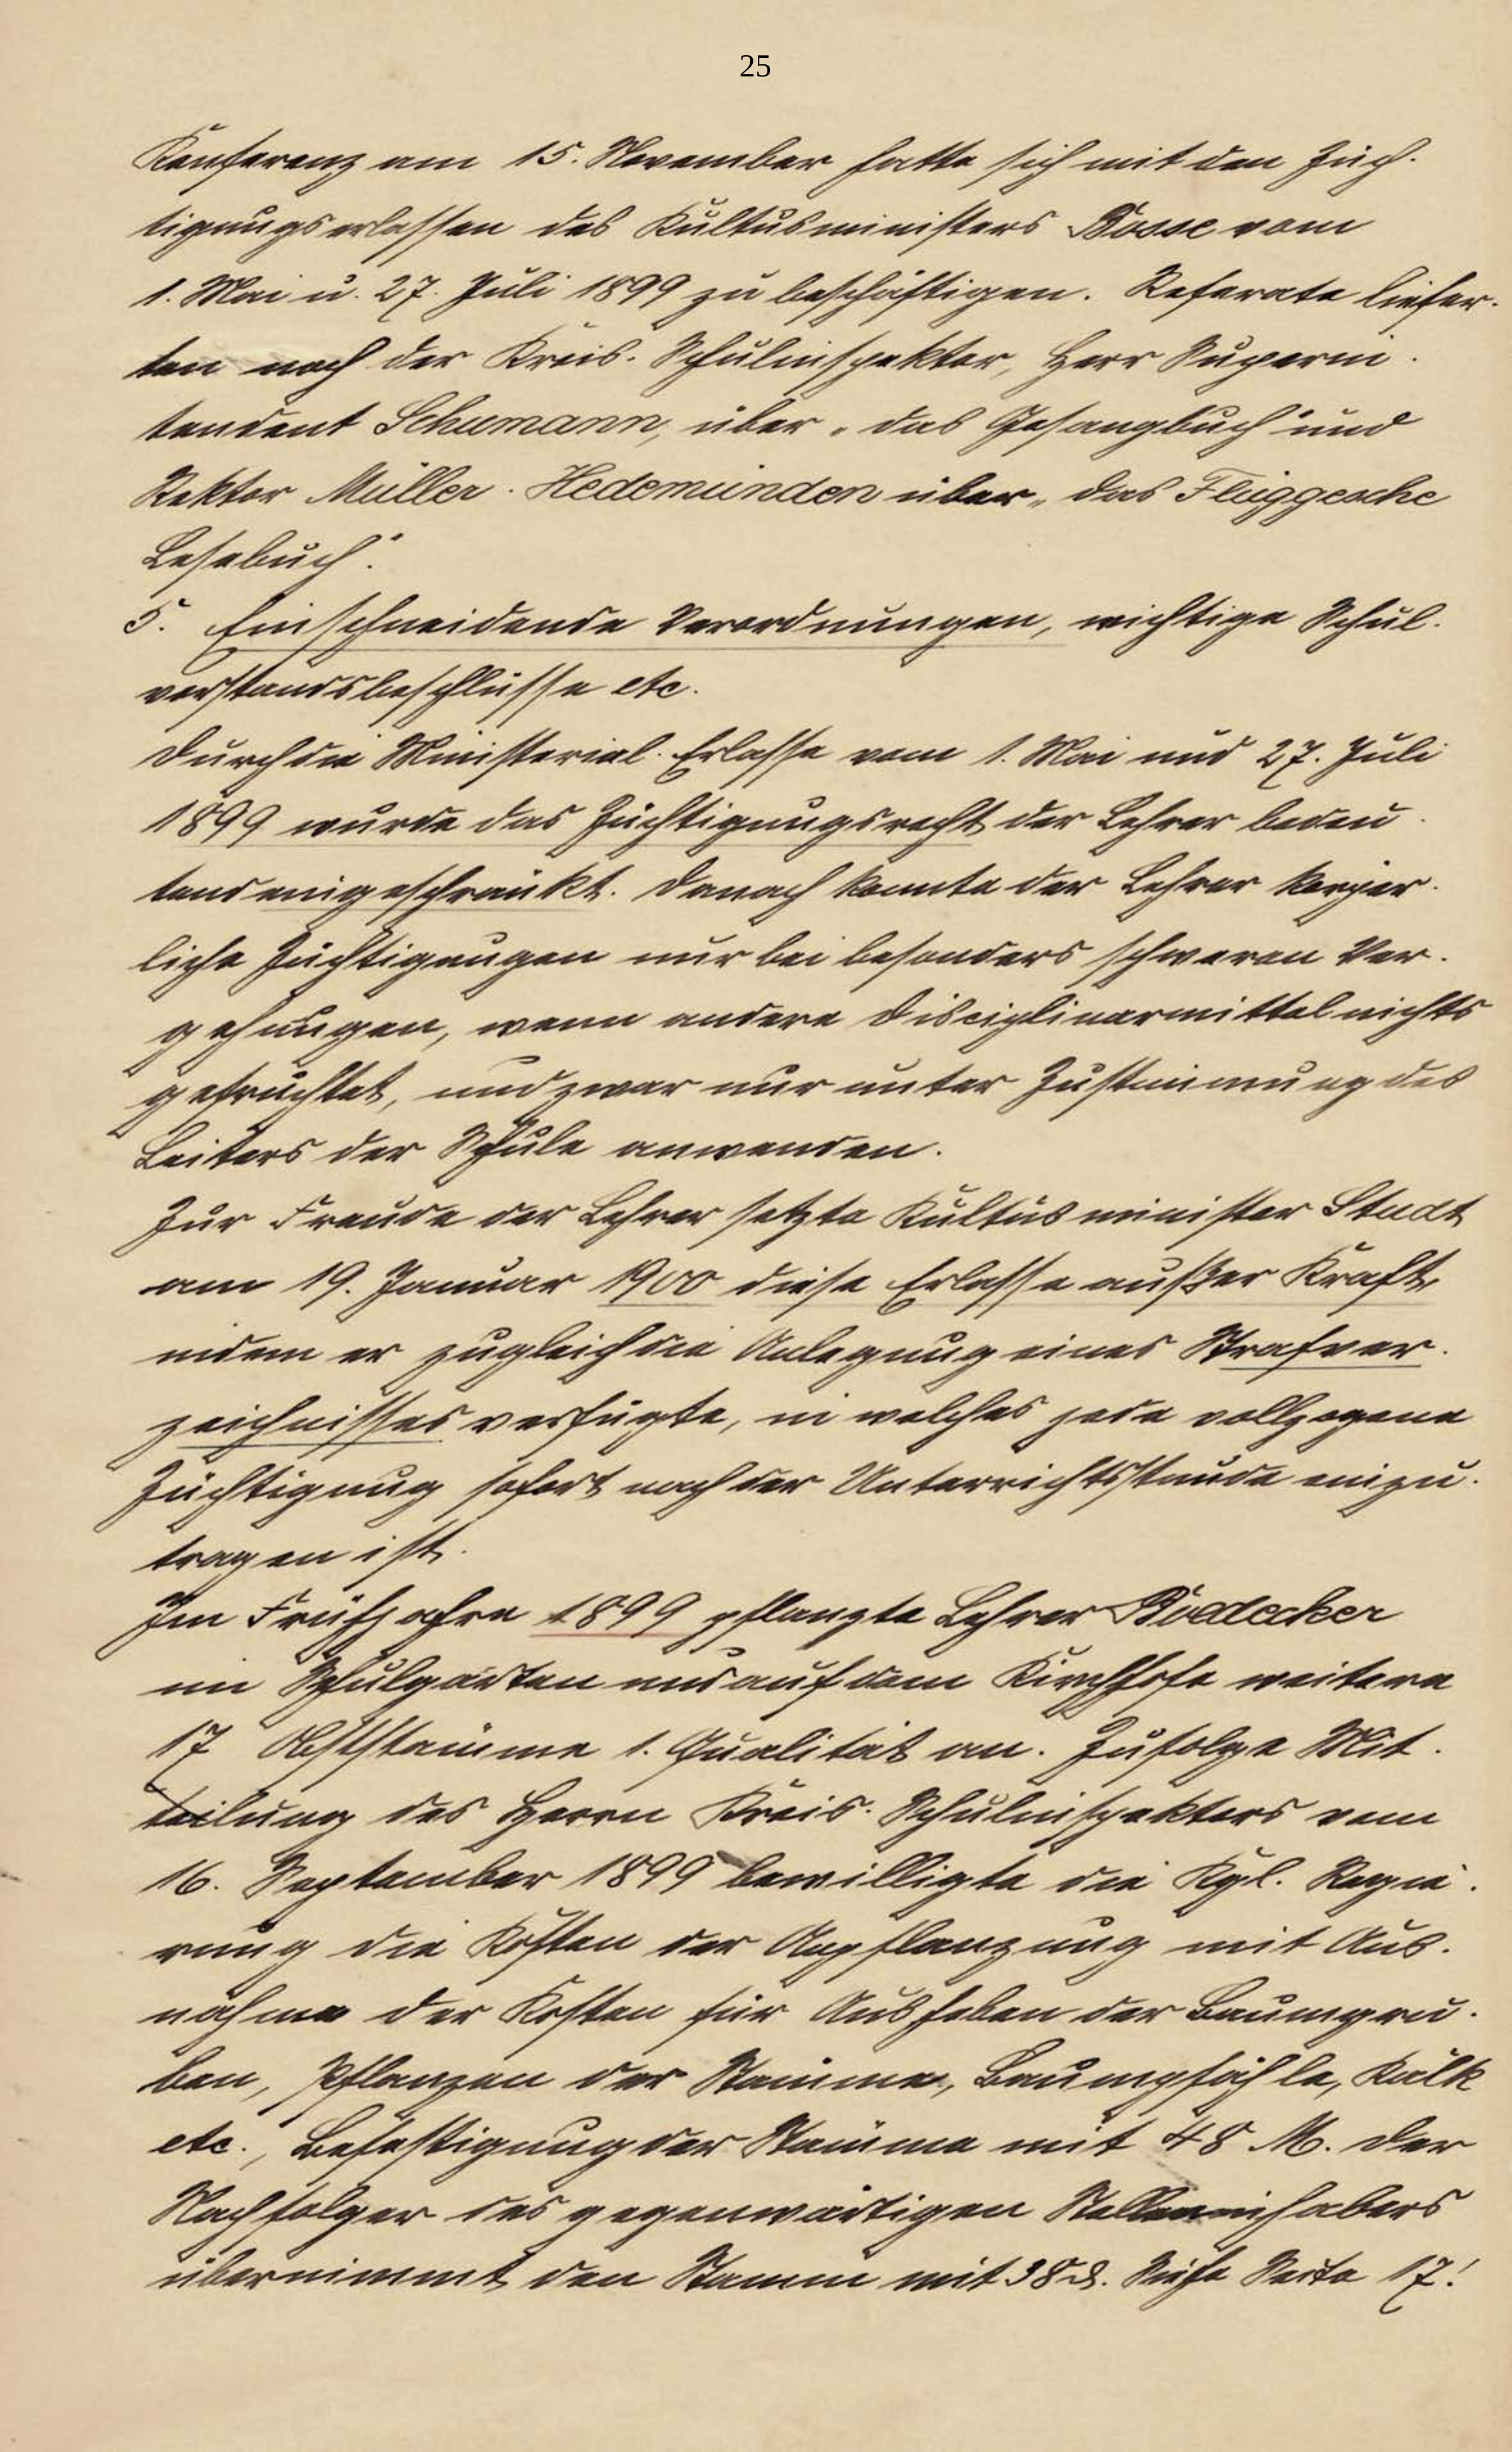 25
Konferenz am 15. November hatte sich mit den Züch-
tigungserlassen des Kultusministers Bosse vom
1. Mai u. 27. Juli 1899 zu beschäftigen. Referate liefer-
ten noch der Kreis-Schulinspektor, Herr Superin-
tendent Schumann, über „das Gesangbuch" und
Rektor Müller-Hedemünden über „das Flüggesche
Lesebuch".
5. Einschneidende Verordnungen, wichtige Schul-
vorstandsbeschlüsse etc.
Durch die Ministerial-Erlasse vom 1. Mai und 27. Juli
1899 wurde das Züchtigungsrecht der Lehrer bedeu-
tend eingeschränkt. Danach konnte der Lehrer körper-
liche Züchtigungen nur bei besonders schweren Ver-
gehungen, wenn andere Disciplinarmittel nichts
gefruchtet, und zwar nur unter Zustimmung des
Leiters der Schule anwenden.
Zur Freude der Lehrer setzte Kultusminister Studt
am 19. Januar 1900 diese Erlasse außer Kraft,
indem er zugleich die Anlegung eines Strafver-
zeichnisses verfügte, in welches jede vollzogene
Züchtigung sofort nach der Unterrichtsstunde einzu-
tragen ist.
Im Frühjahre 1899 pflanzte Lehrer Boedecker
im Schulgarten und auf dem Kirchhofe weitere
17 Obststämme 1. Qualität an. Zufolge Mit-
teilung des Herrn Kreis-Schulinspektors vom
16. September 1899 bewilligte die Kgl. Regie-
rung die Kosten der Anpflanzung mit Aus-
nahme der Kosten für Ausheben der Baumgru-
ben, Pflanzen der Stämme, Baumpfähle, Kalk
etc., Befestigung der Stämme mit 48 M. Der
Nachfolger des gegenwärtigen Stelleninhabers
übernimmt den Stamm mit 38 ₰. Siehe Seite 17!